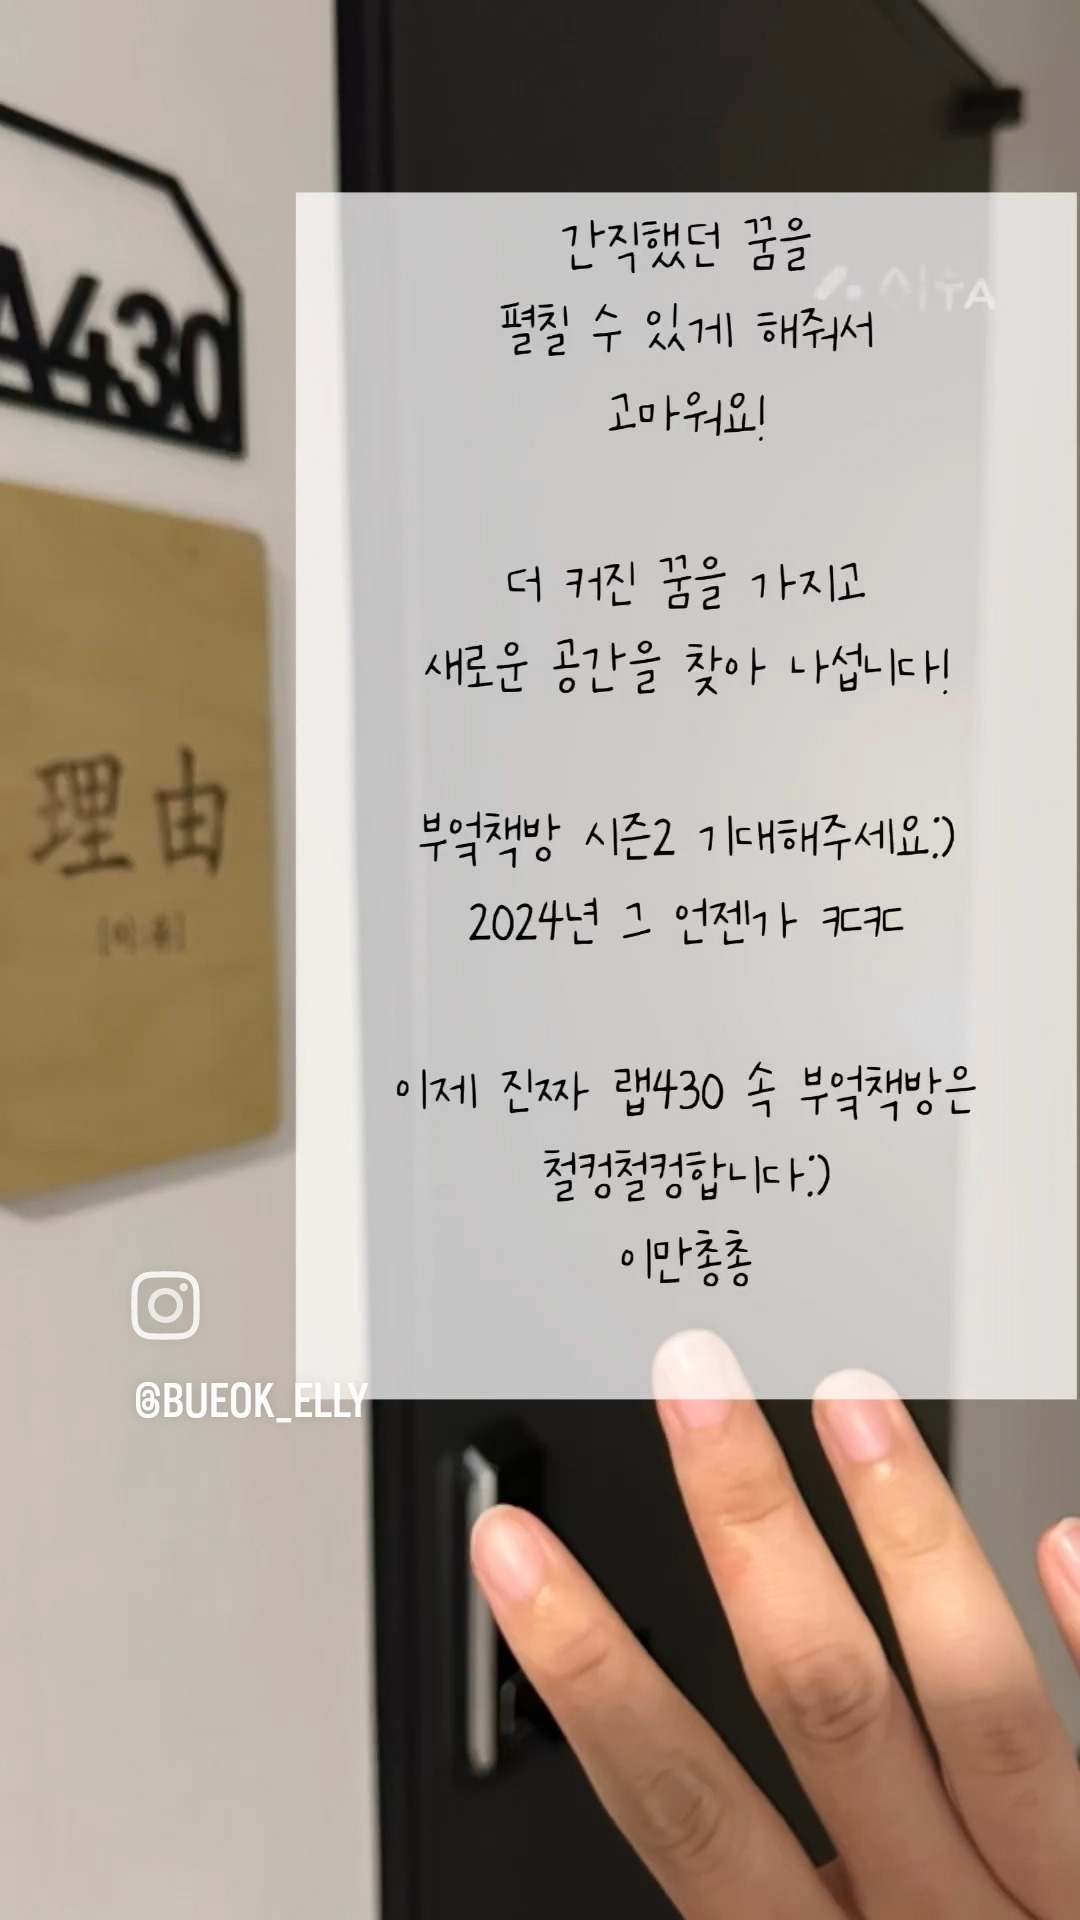 A430
理由
간직했던 꿈을
펼칠 수 있게 해줘서
고마워요!
더 커진 꿈을 가지고
새로운 공간을 찾아 나섭니다!
부엌책방 시즌2 기대해주세요:)
2024년 그 언젠가 ㅋㄷㅋㄷ
이제 진짜 랩430 속 부엌책방은
철컹철컹합니다:)
이만총총
@BUEOK_ELLY